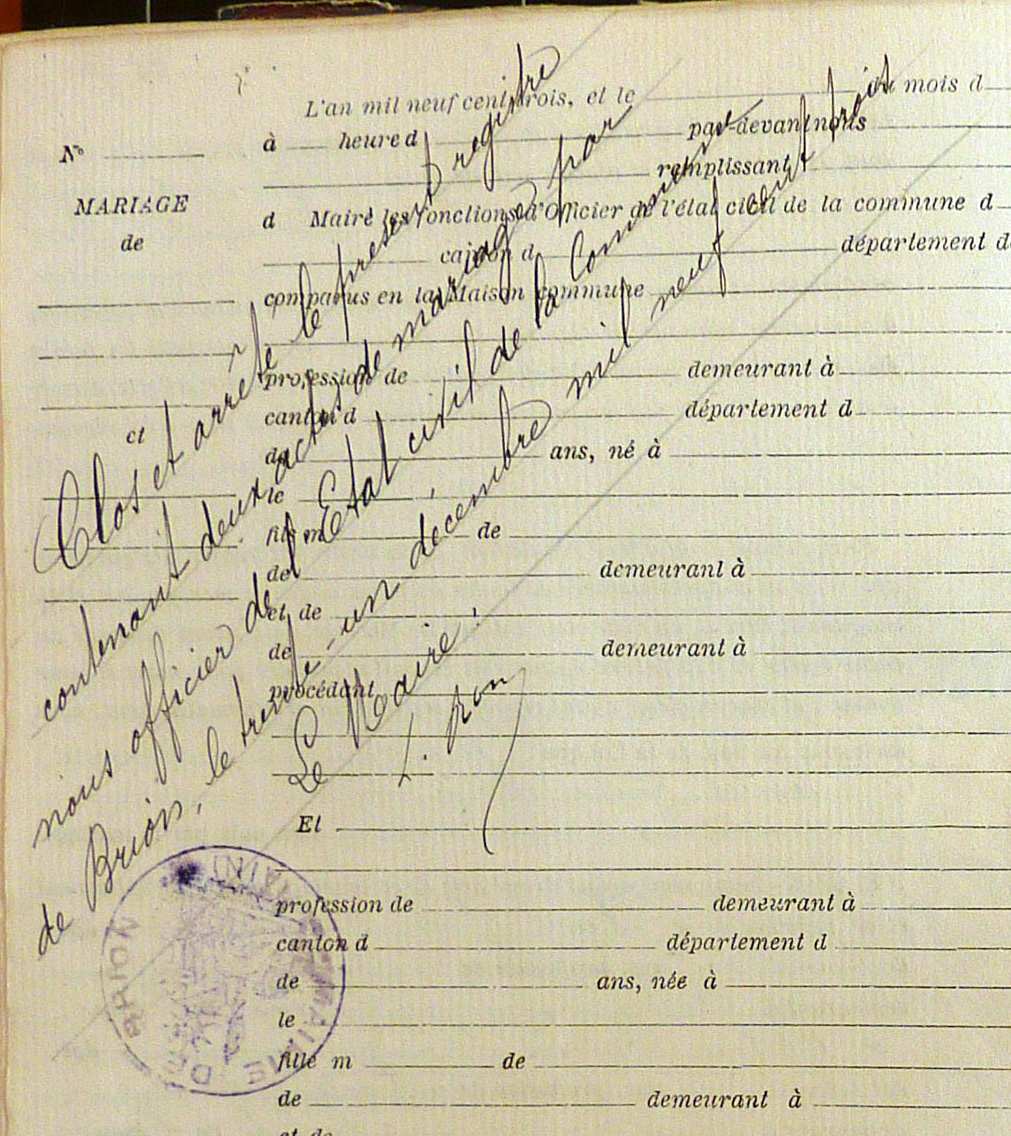 L'an mil neuf cent trois, et le du mois d
à heure d par-devant nous
remplissant
d Maire les fonctions d'Officier de l'état civil de la commune d
canton d département d
comparus en la Maison commune
profession de demeurant à
canton d département d
de ans, né à
le
fils m de
de demeurant à
et de
de demeurant à
procédant
Et
profession de demeurant à
canton d département d
de ans, née à
le
fille m de
de demeurant à
et de
N°
MARIAGE
de
et
Clos et arrêté le présent registre
contenant deux actes de mariages par
nous officier de l'Etat civil de la Commune
de Brion, le trente-un décembre mil neuf cent trois
Le Maire.
MAIRIE DE BRION